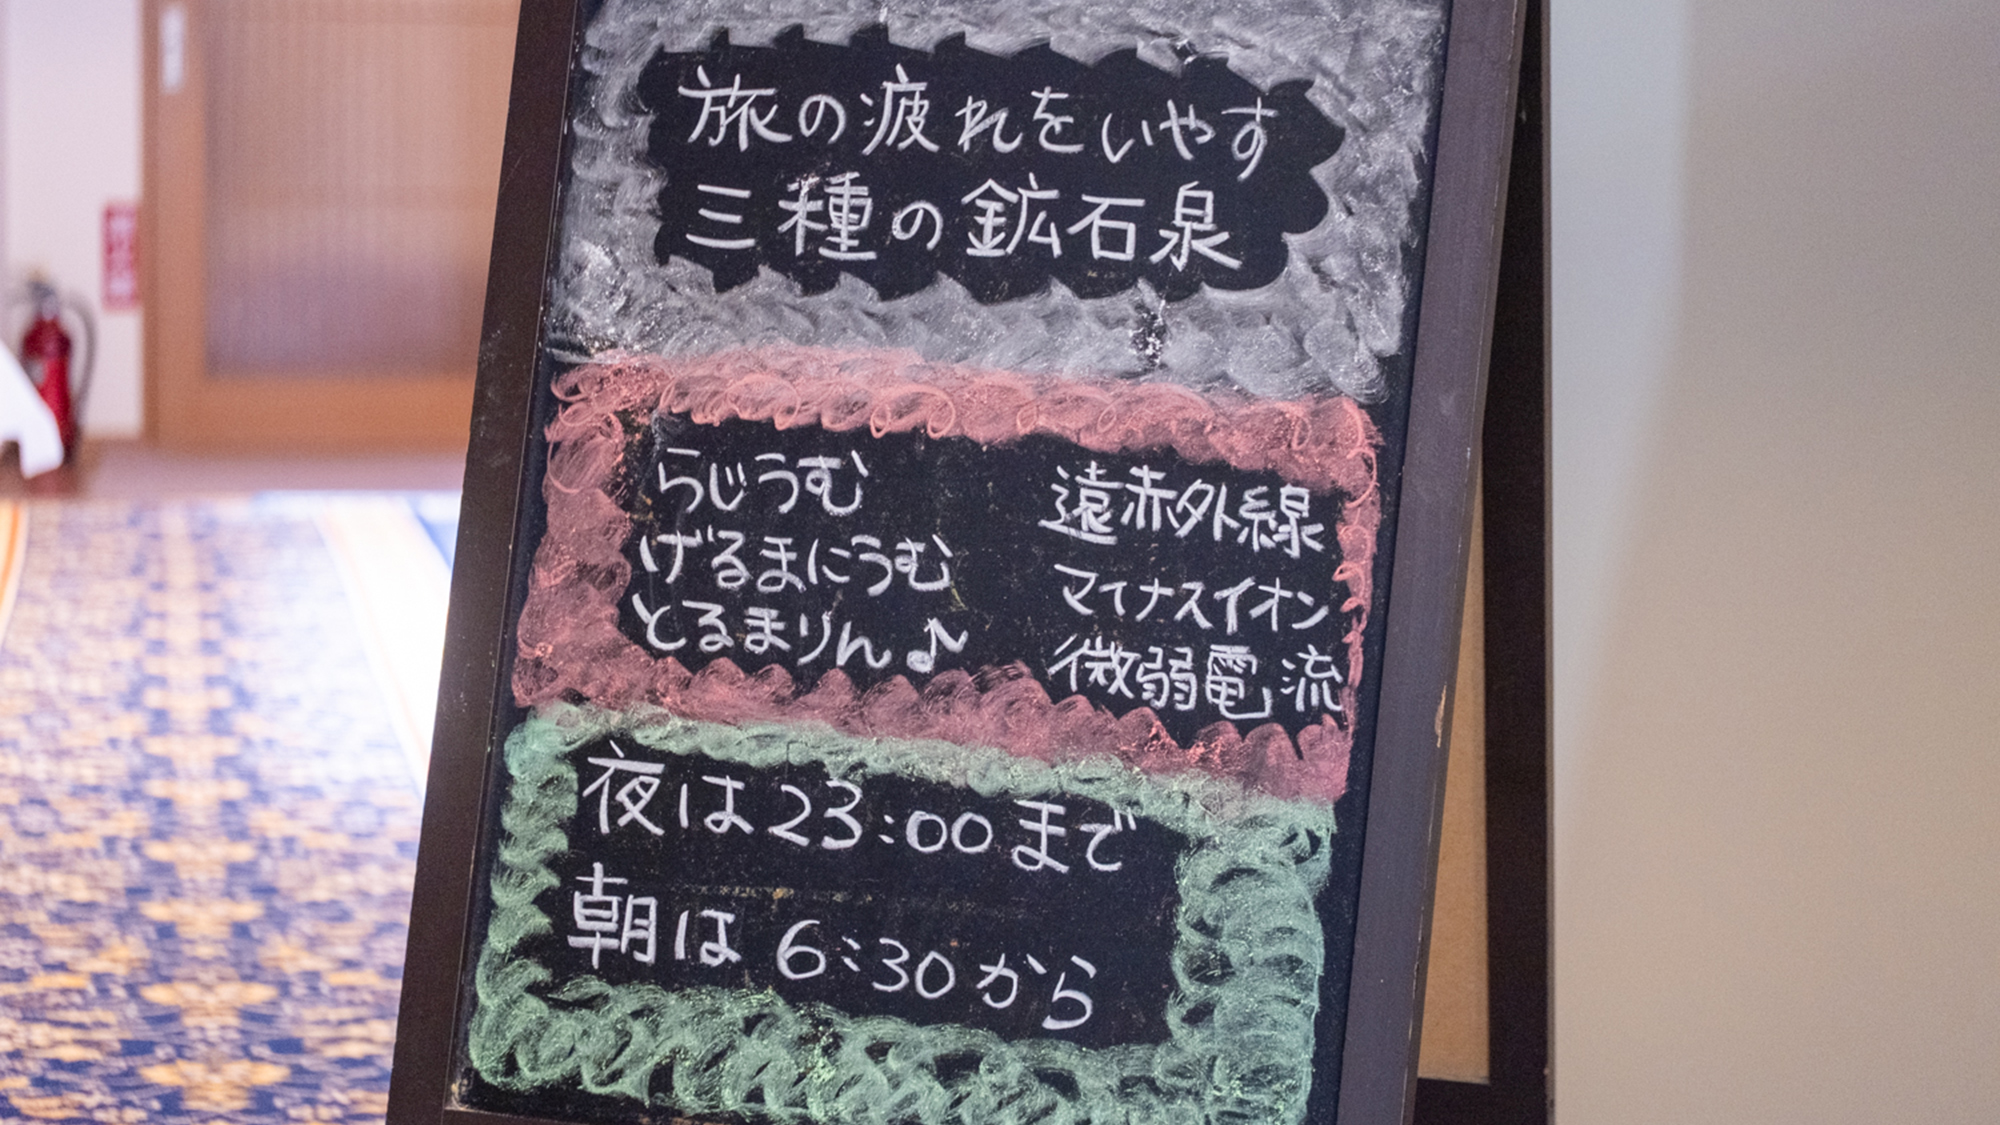 旅の疲れをいやす
三種の鉱石泉
らじうむ
げるまにうむ
とるまりん♪
遠赤外線
マイナスイオン
微弱電流
夜は23:00まで
朝は6:30から